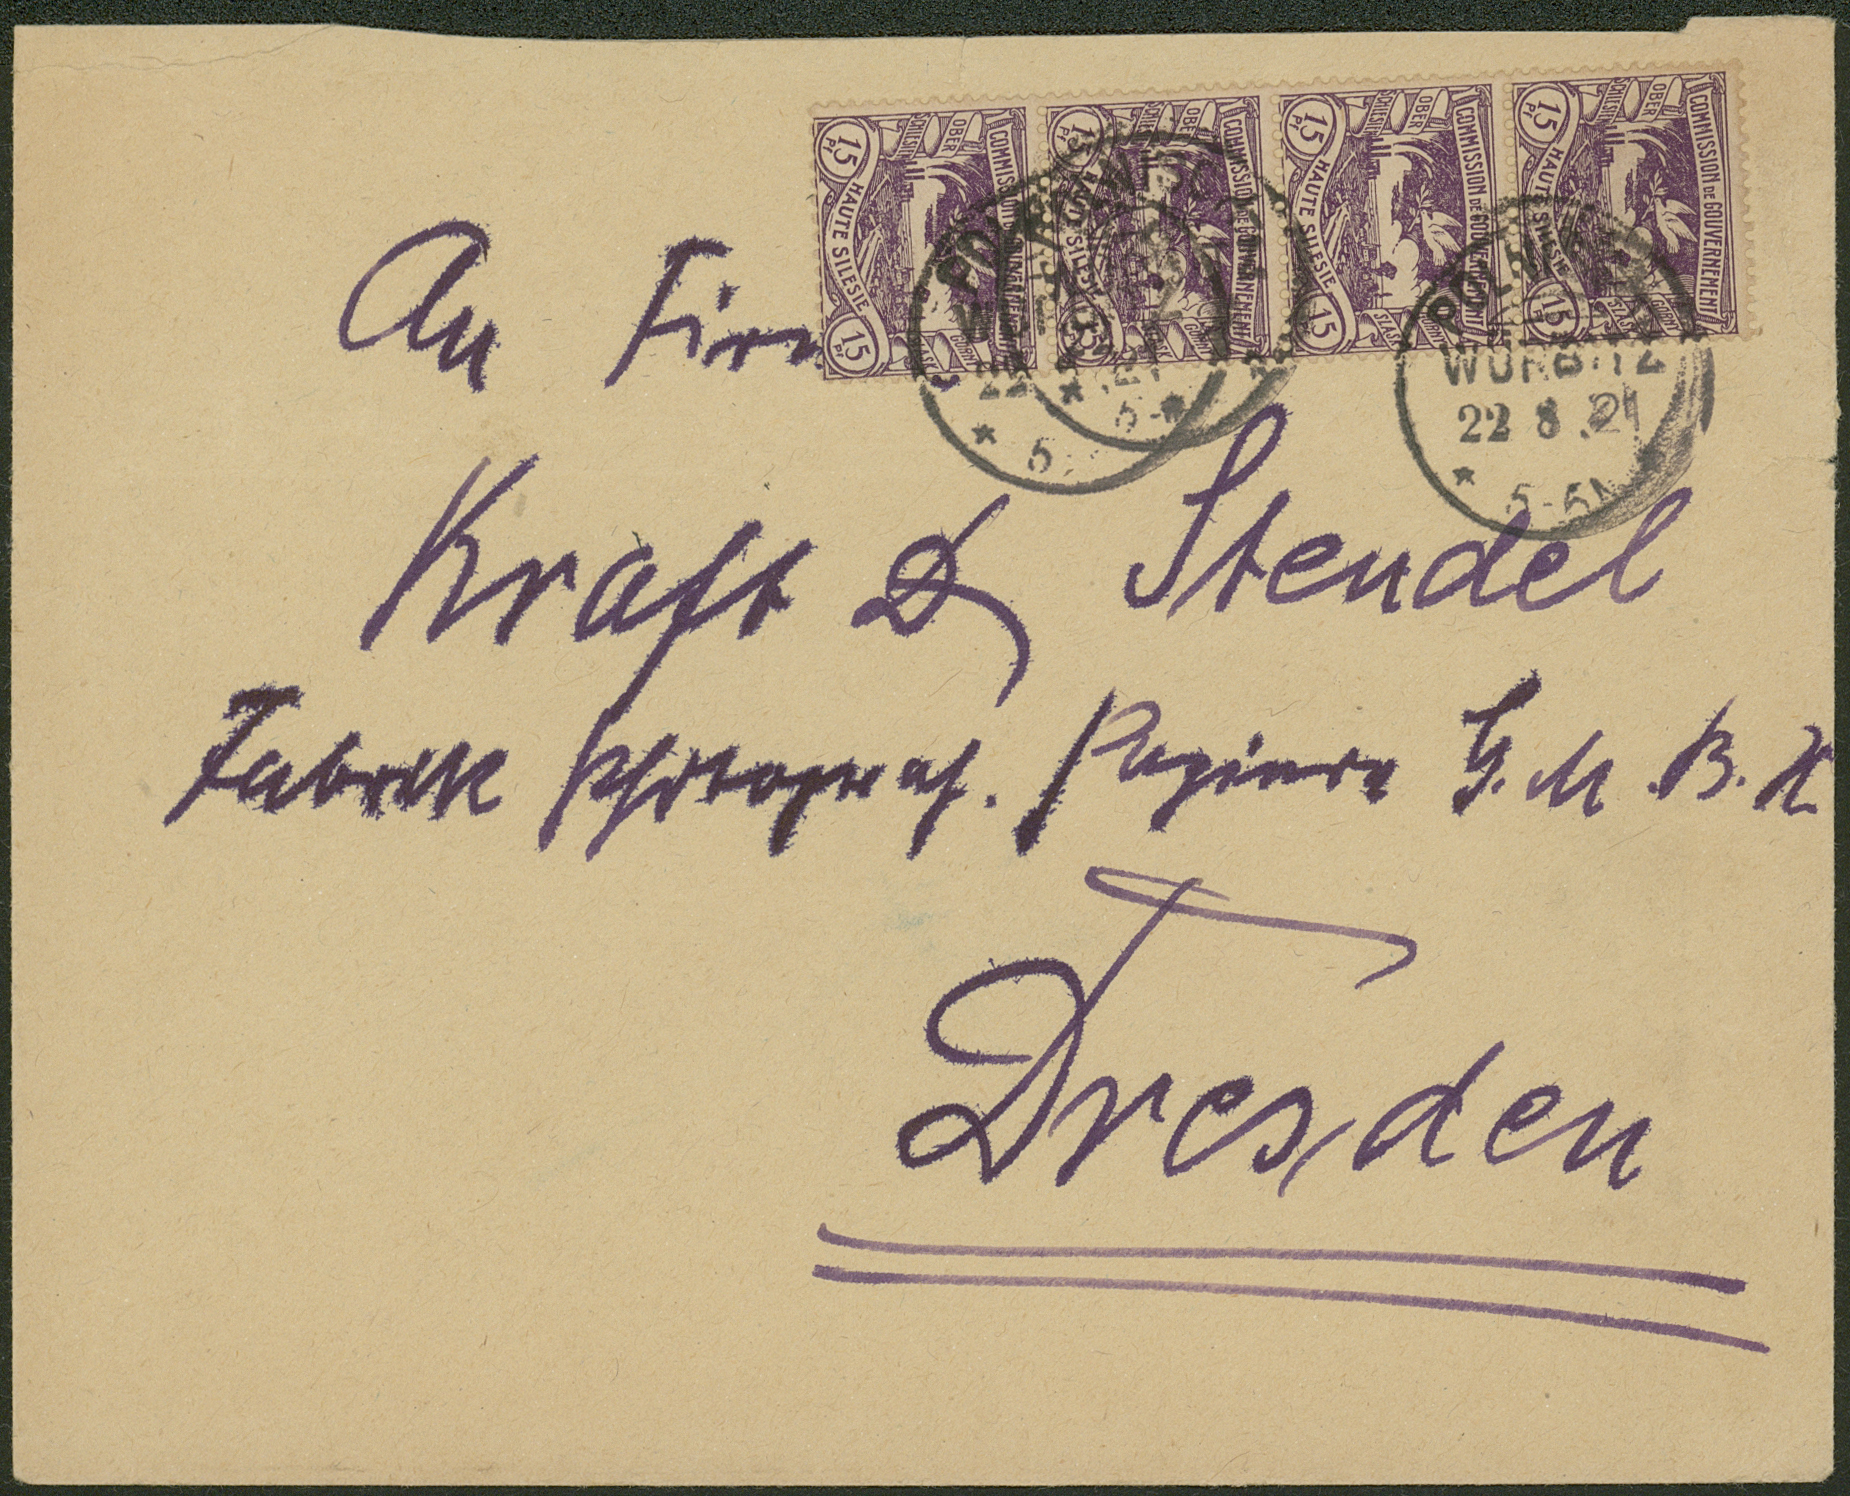 An Firma
Kraft & Steudel
Fabrik Photograph. Papiere G.M.B.H
Dresden
15 Pf
HAUTE SILESIE
15 Pf
OBER
SCHLESIEN
COMMISSION DE GOUVERNEMENT
GÓRNY
SZLĄSK
15
HAUTE SILESIE
15
OBER
COMMISSION DE GOUVERNEMENT
15 Pf
HAUTE SILESIE
15
OBER
SCHLESIEN
COMMISSION DE GOUVERNEMENT
GÓRNY
SZLĄSK
15 Pf
HAUTE SILESIE
15 Pf
OBER
SCHLESIEN
COMMISSION DE GOUVERNEMENT
GÓRNY
SZLĄSK
WÜRBITZ
22 8.21
* 5-6N *